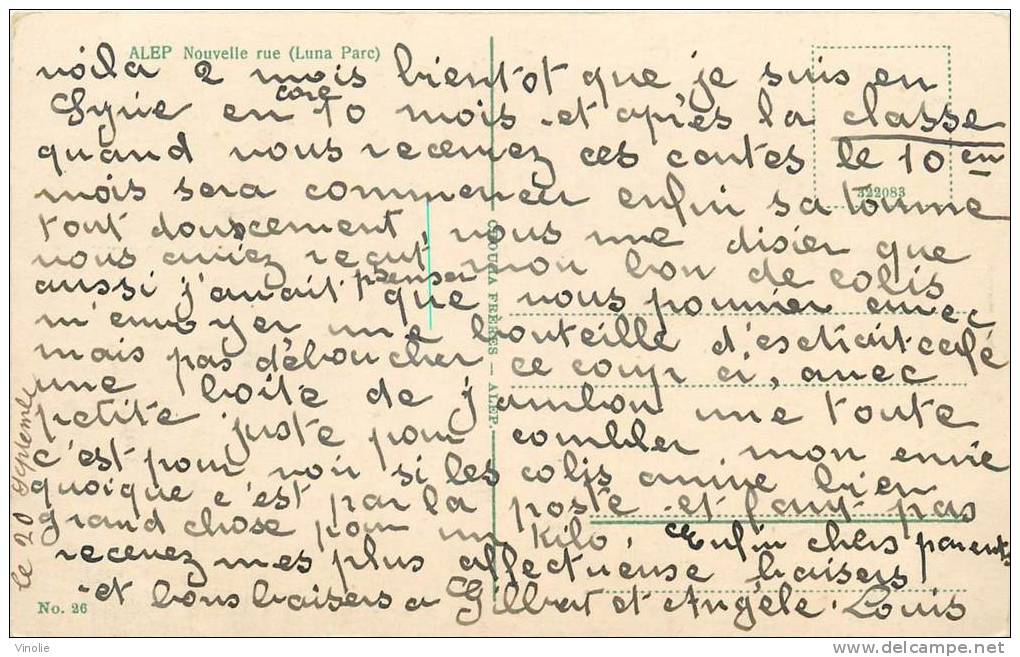 ALEP Nouvelle rue (Luna Parc)
voila 2 mois bientot que je suis en
Syrie encore 10 mois et après la classe
quand vous recevrez ces cartes le 10 em
mois sera commencer enfin sa tourne
tout doucement, vous me disier que
vous aviez reçut mon bon de colis
aussi j'avait penser que vous pourrier avec
m'envoyer une bouteille d'estrait café
mais pas déboucher ce coup ci, avec
une boite de jambon une toute
petite juste pour combler mon envie
c'est pour voir si les colis arrive bien
quoique c'est par la poste et faut pas
grand chose pour un kilo. Enfin chers parents
recevez mes plus affectueuse baisers
et bons baisers a Gilbert et Angèle. Louis
le 20 septembre
322083
FRÈRES - ALEP
No. 26
Vinolie
delcampe.net